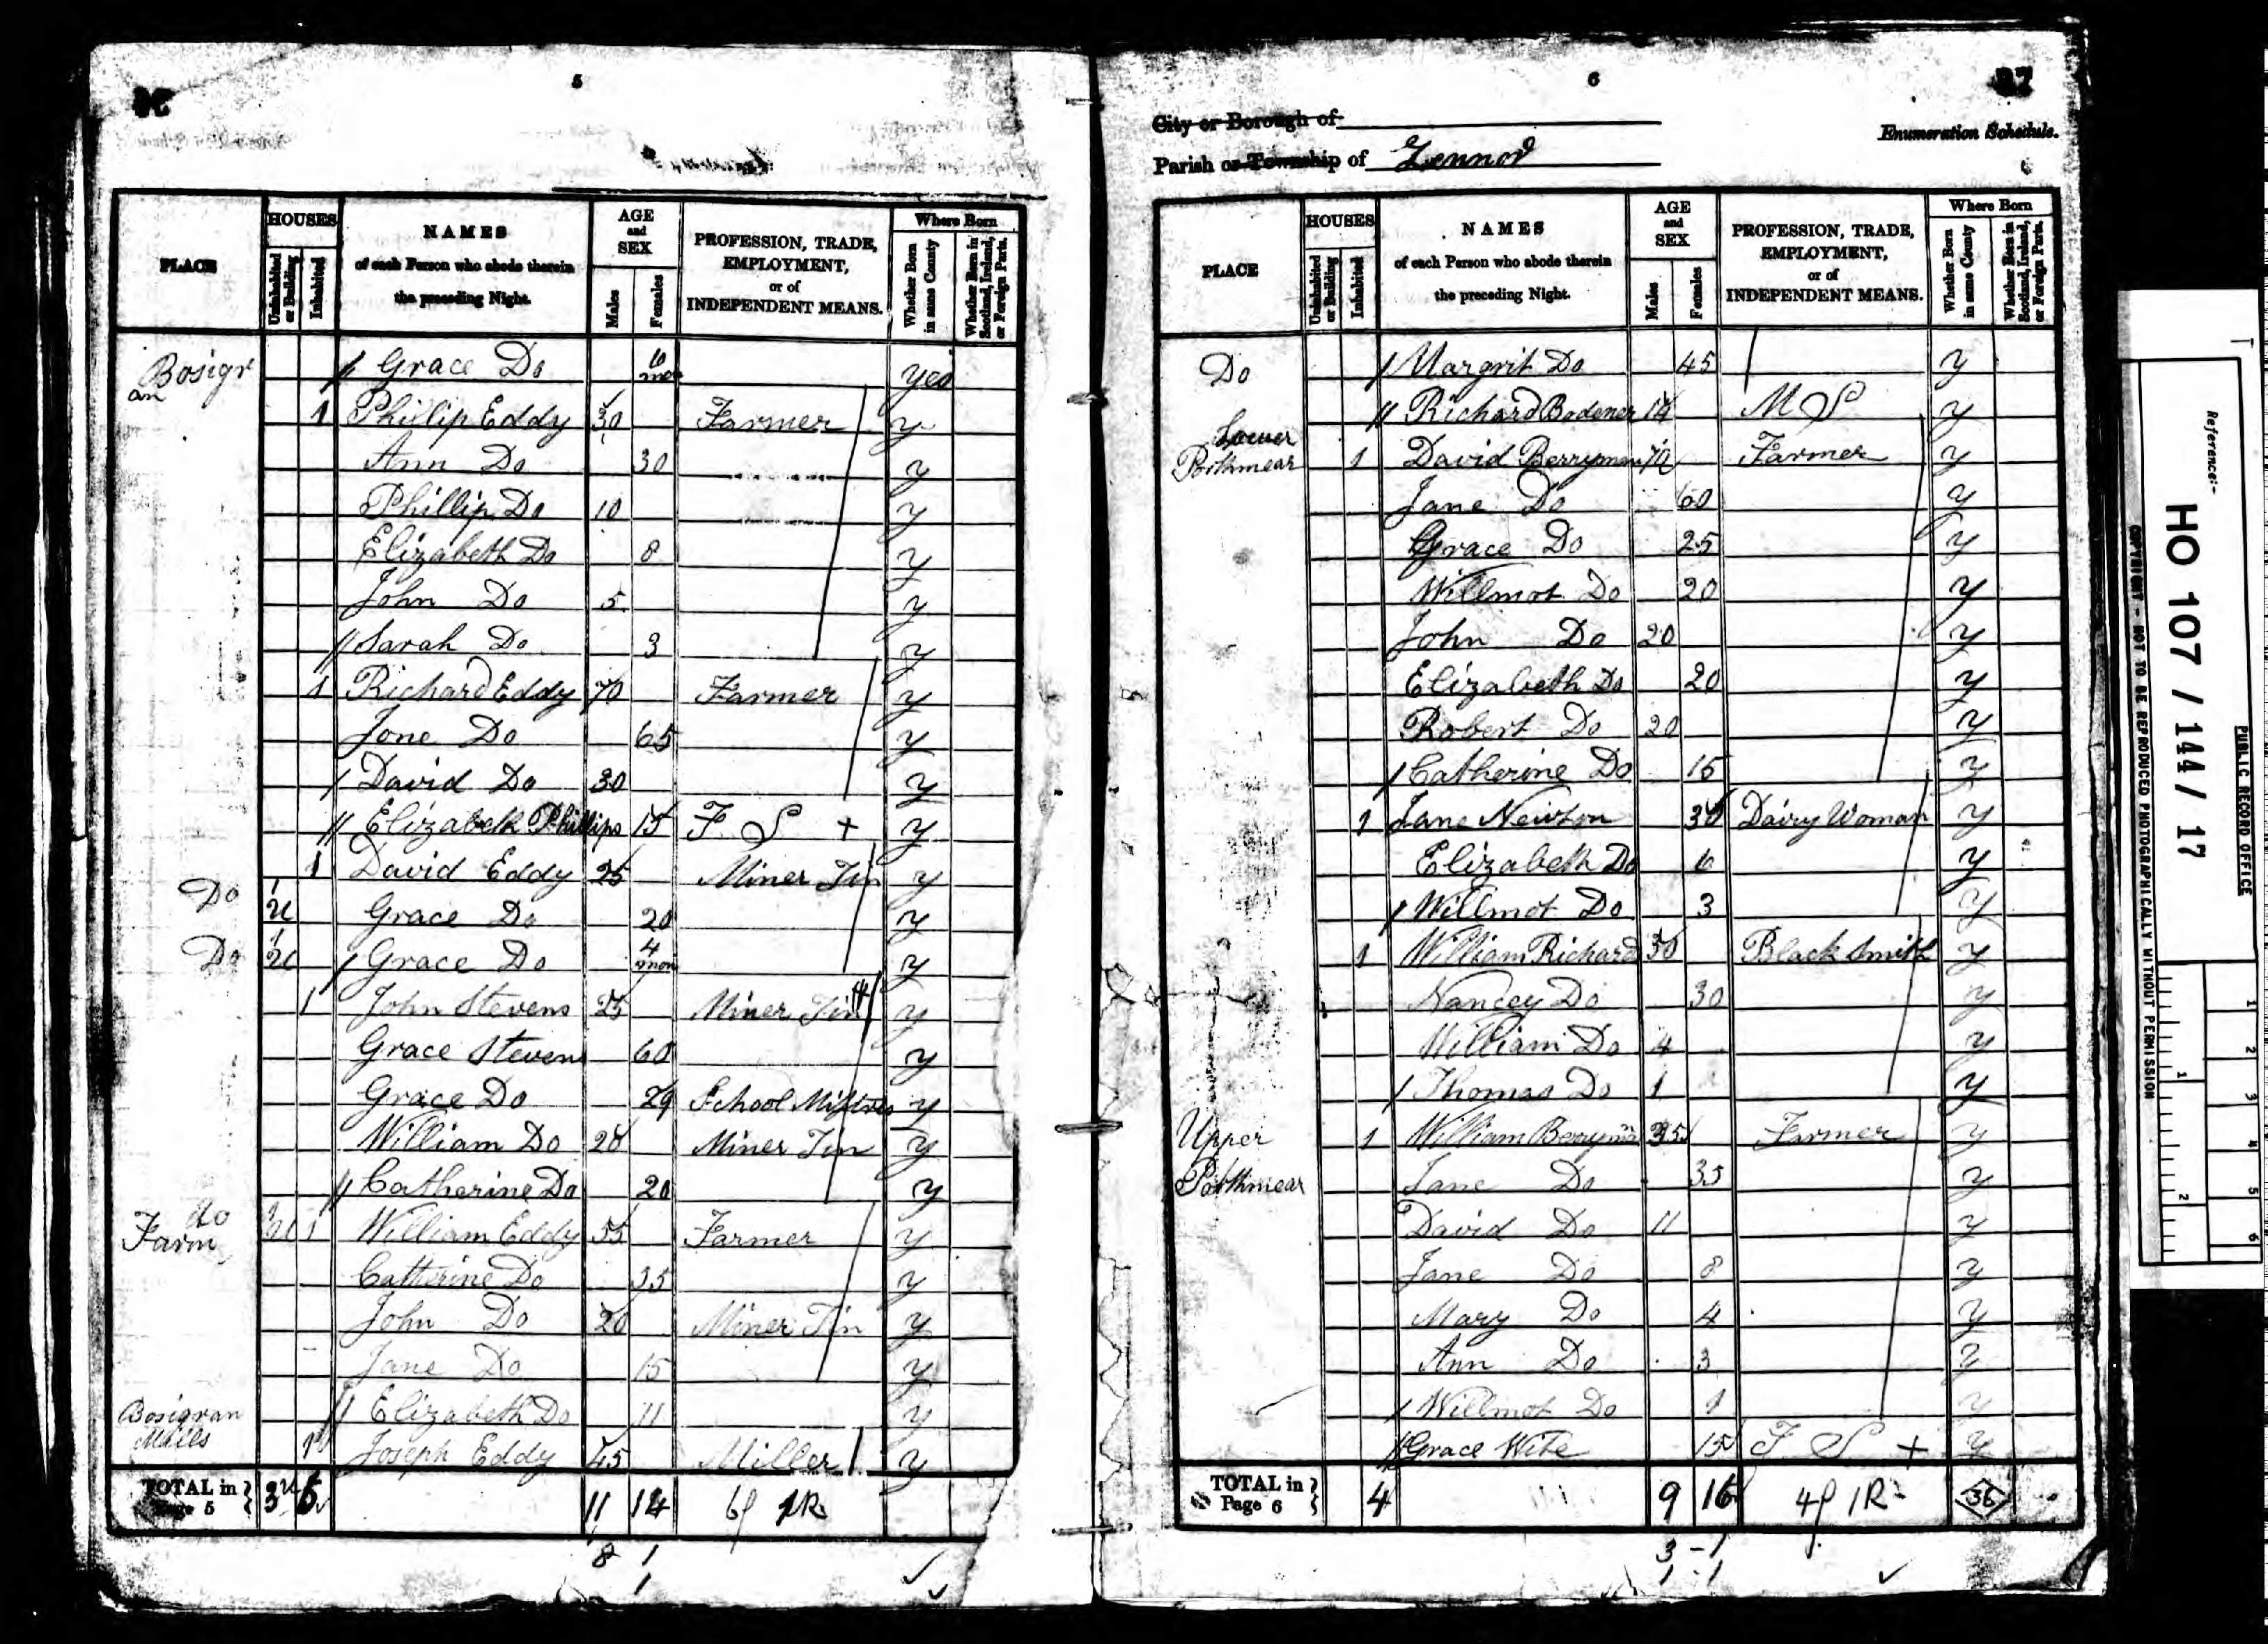 5
PLACE
HOUSES
Uninhabited or Building
Inhabited
NAMES
of each Person who abode therein
the preceding Night.
AGE and SEX
Males
Females
PROFESSION, TRADE, EMPLOYMENT, or of INDEPENDENT MEANS.
Where Born
Whether Born in same County
Whether Born in Scotland, Ireland, or Foreign Parts.
Bosigran Grace Do 6 mos yes
1 Phillip Eddy 30 Farmer y
Ann Do 30 y
Phillip Do 10 y
Elizabeth Do 8 y
John Do 5 y
Sarah Do 3 y
1 Richard Eddy 70 Farmer y
Jone Do 65 y
David Do 30 y
Elizabeth Phillips 15 F S + y
1 David Eddy 25 Miner Tin y
Do 1 u Grace Do 20 y
Do 1 u Grace Do 4 mon y
1 John Stevens 25 Miner Tin y
Grace Stevens 60 y
Grace Do 29 School Mistres y
William Do 20 Miner Tin y
Catherine Do 20 y
do Farm 1 William Eddy 55 Farmer y
Catherine Do 35 y
John Do 20 Miner Tin y
Jane Do 15 y
Elizabeth Do 11 y
Bosigran Mills 1 Joseph Eddy 45 Miller y
TOTAL in Page 5 3u 6 11 14
8 1
1
6
City or Borough of
Parish or Township of Zennor
Enumeration Schedule.
PLACE
HOUSES
Uninhabited or Building
Inhabited
NAMES
of each Person who abode therein
the preceding Night.
AGE and SEX
Males
Females
PROFESSION, TRADE, EMPLOYMENT, or of INDEPENDENT MEANS.
Where Born
Whether Born in same County
Whether Born in Scotland, Ireland, or Foreign Parts.
Do Margrit Do 45 y
Richard Bodener 14 M S y
Lower Porthmear 1 David Berryman 70 Farmer y
Jane Do 60 y
Grace Do 25 y
Willmot Do 20 y
John Do 20 y
Elizabeth Do 20 y
Robert Do 20 y
Catherine Do 15 y
1 Jane Newton 30 Dairy Woman y
Elizabeth Do 6 y
Willmot Do 3 y
1 William Richard 30 Black Smith y
Nancey Do 30 y
William Do 4 y
Thomas Do 1 y
Upper Porthmear 1 William Berryman 35 Farmer y
Jane Do 35 y
David Do 11 y
Jane Do 8 y
Mary Do 4 y
Ann Do 3 y
Willmot Do 1 y
Grace Wite 15 F S + y
TOTAL in Page 6 4 9 16 36
3 - 1
1 - 1
Reference:-
HO 107 / 144 / 17
PUBLIC RECORD OFFICE
COPYRIGHT - NOT TO BE REPRODUCED PHOTOGRAPHICALLY WITHOUT PERMISSION
1 2 3 4 5 6
1 2